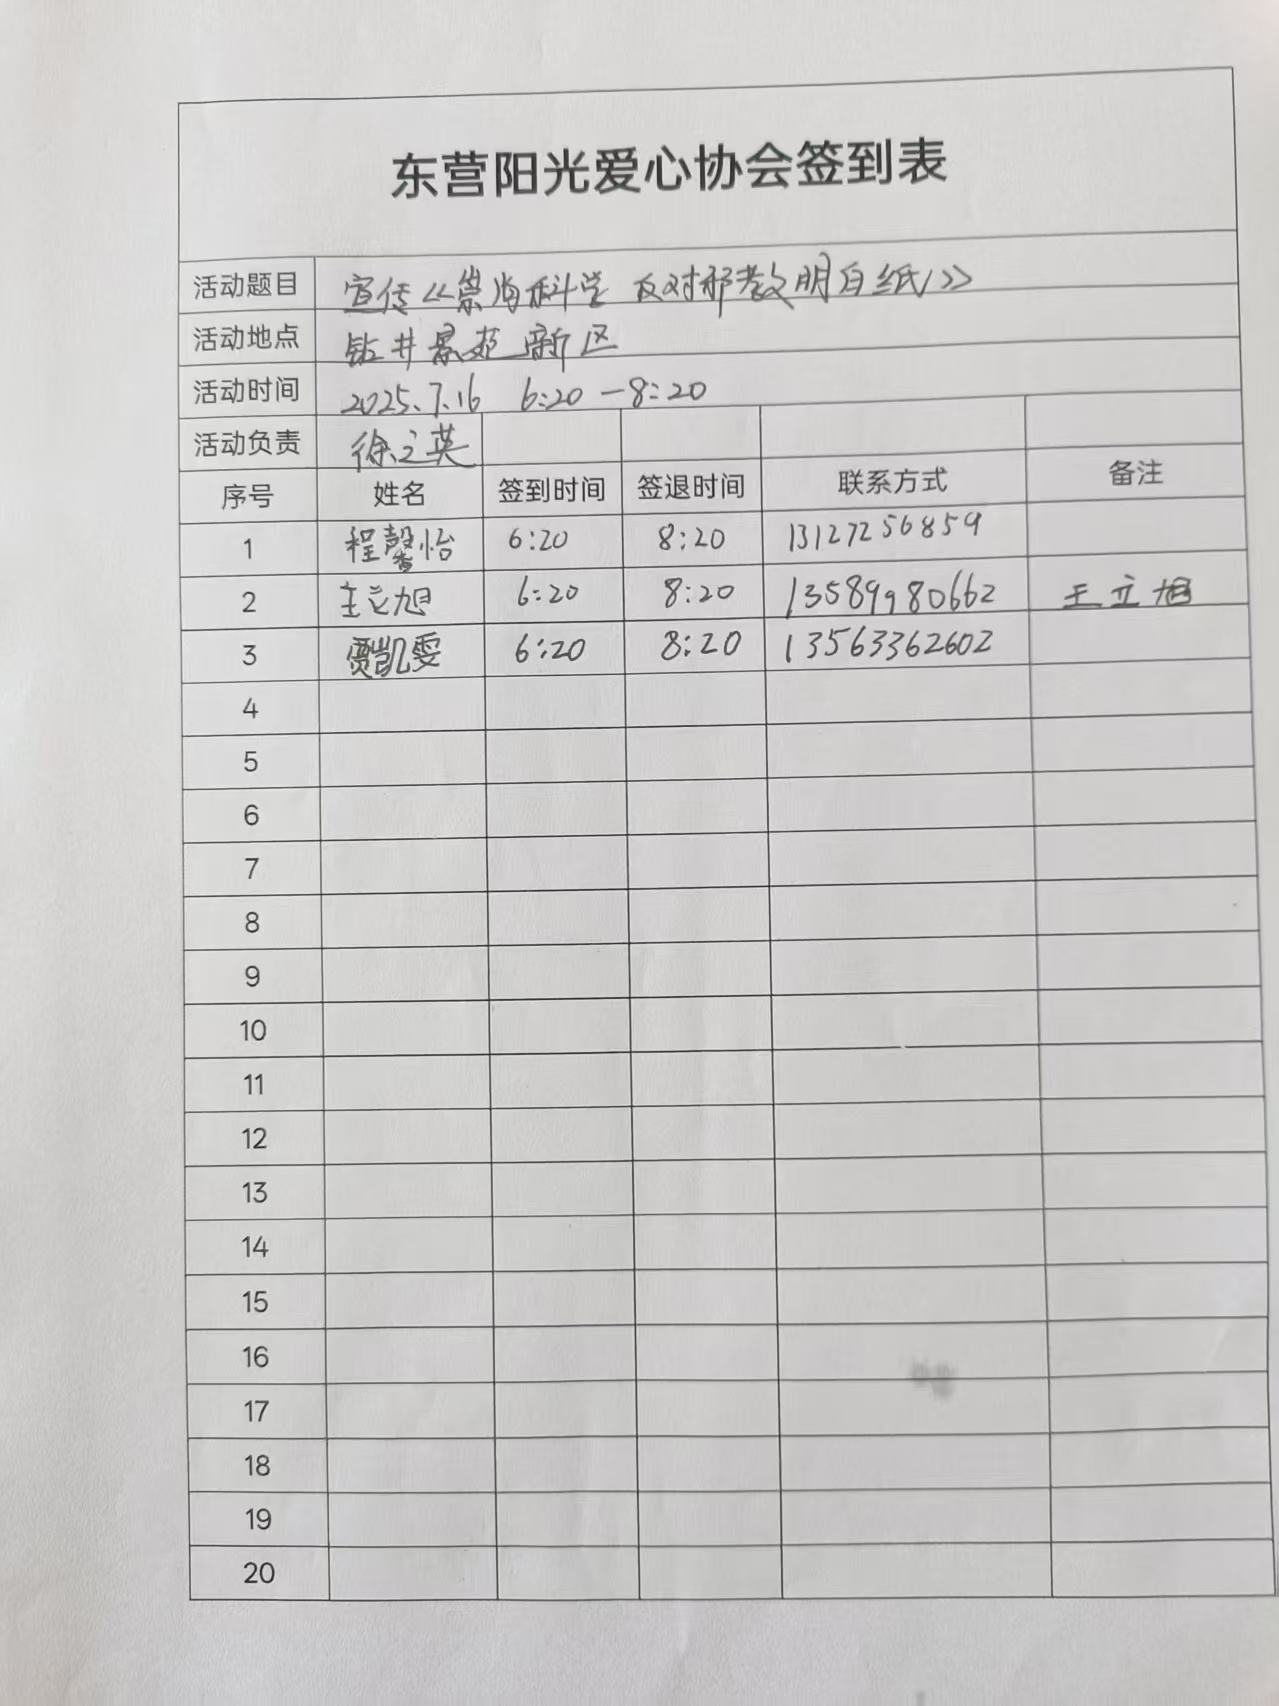 东营阳光爱心协会签到表
活动题目 宣传《崇尚科学 反对邪教明白纸》
活动地点 钻井景苑新区
活动时间 2025.7.16 6:20—8:20
活动负责 徐立英
序号 姓名 签到时间 签退时间 联系方式 备注
1 程馨怡 6:20 8:20 13127256859
2 王立旭 6:20 8:20 13589980662 王立旭
3 贾凯雯 6:20 8:20 13563362602
4
5
6
7
8
9
10
11
12
13
14
15
16
17
18
19
20